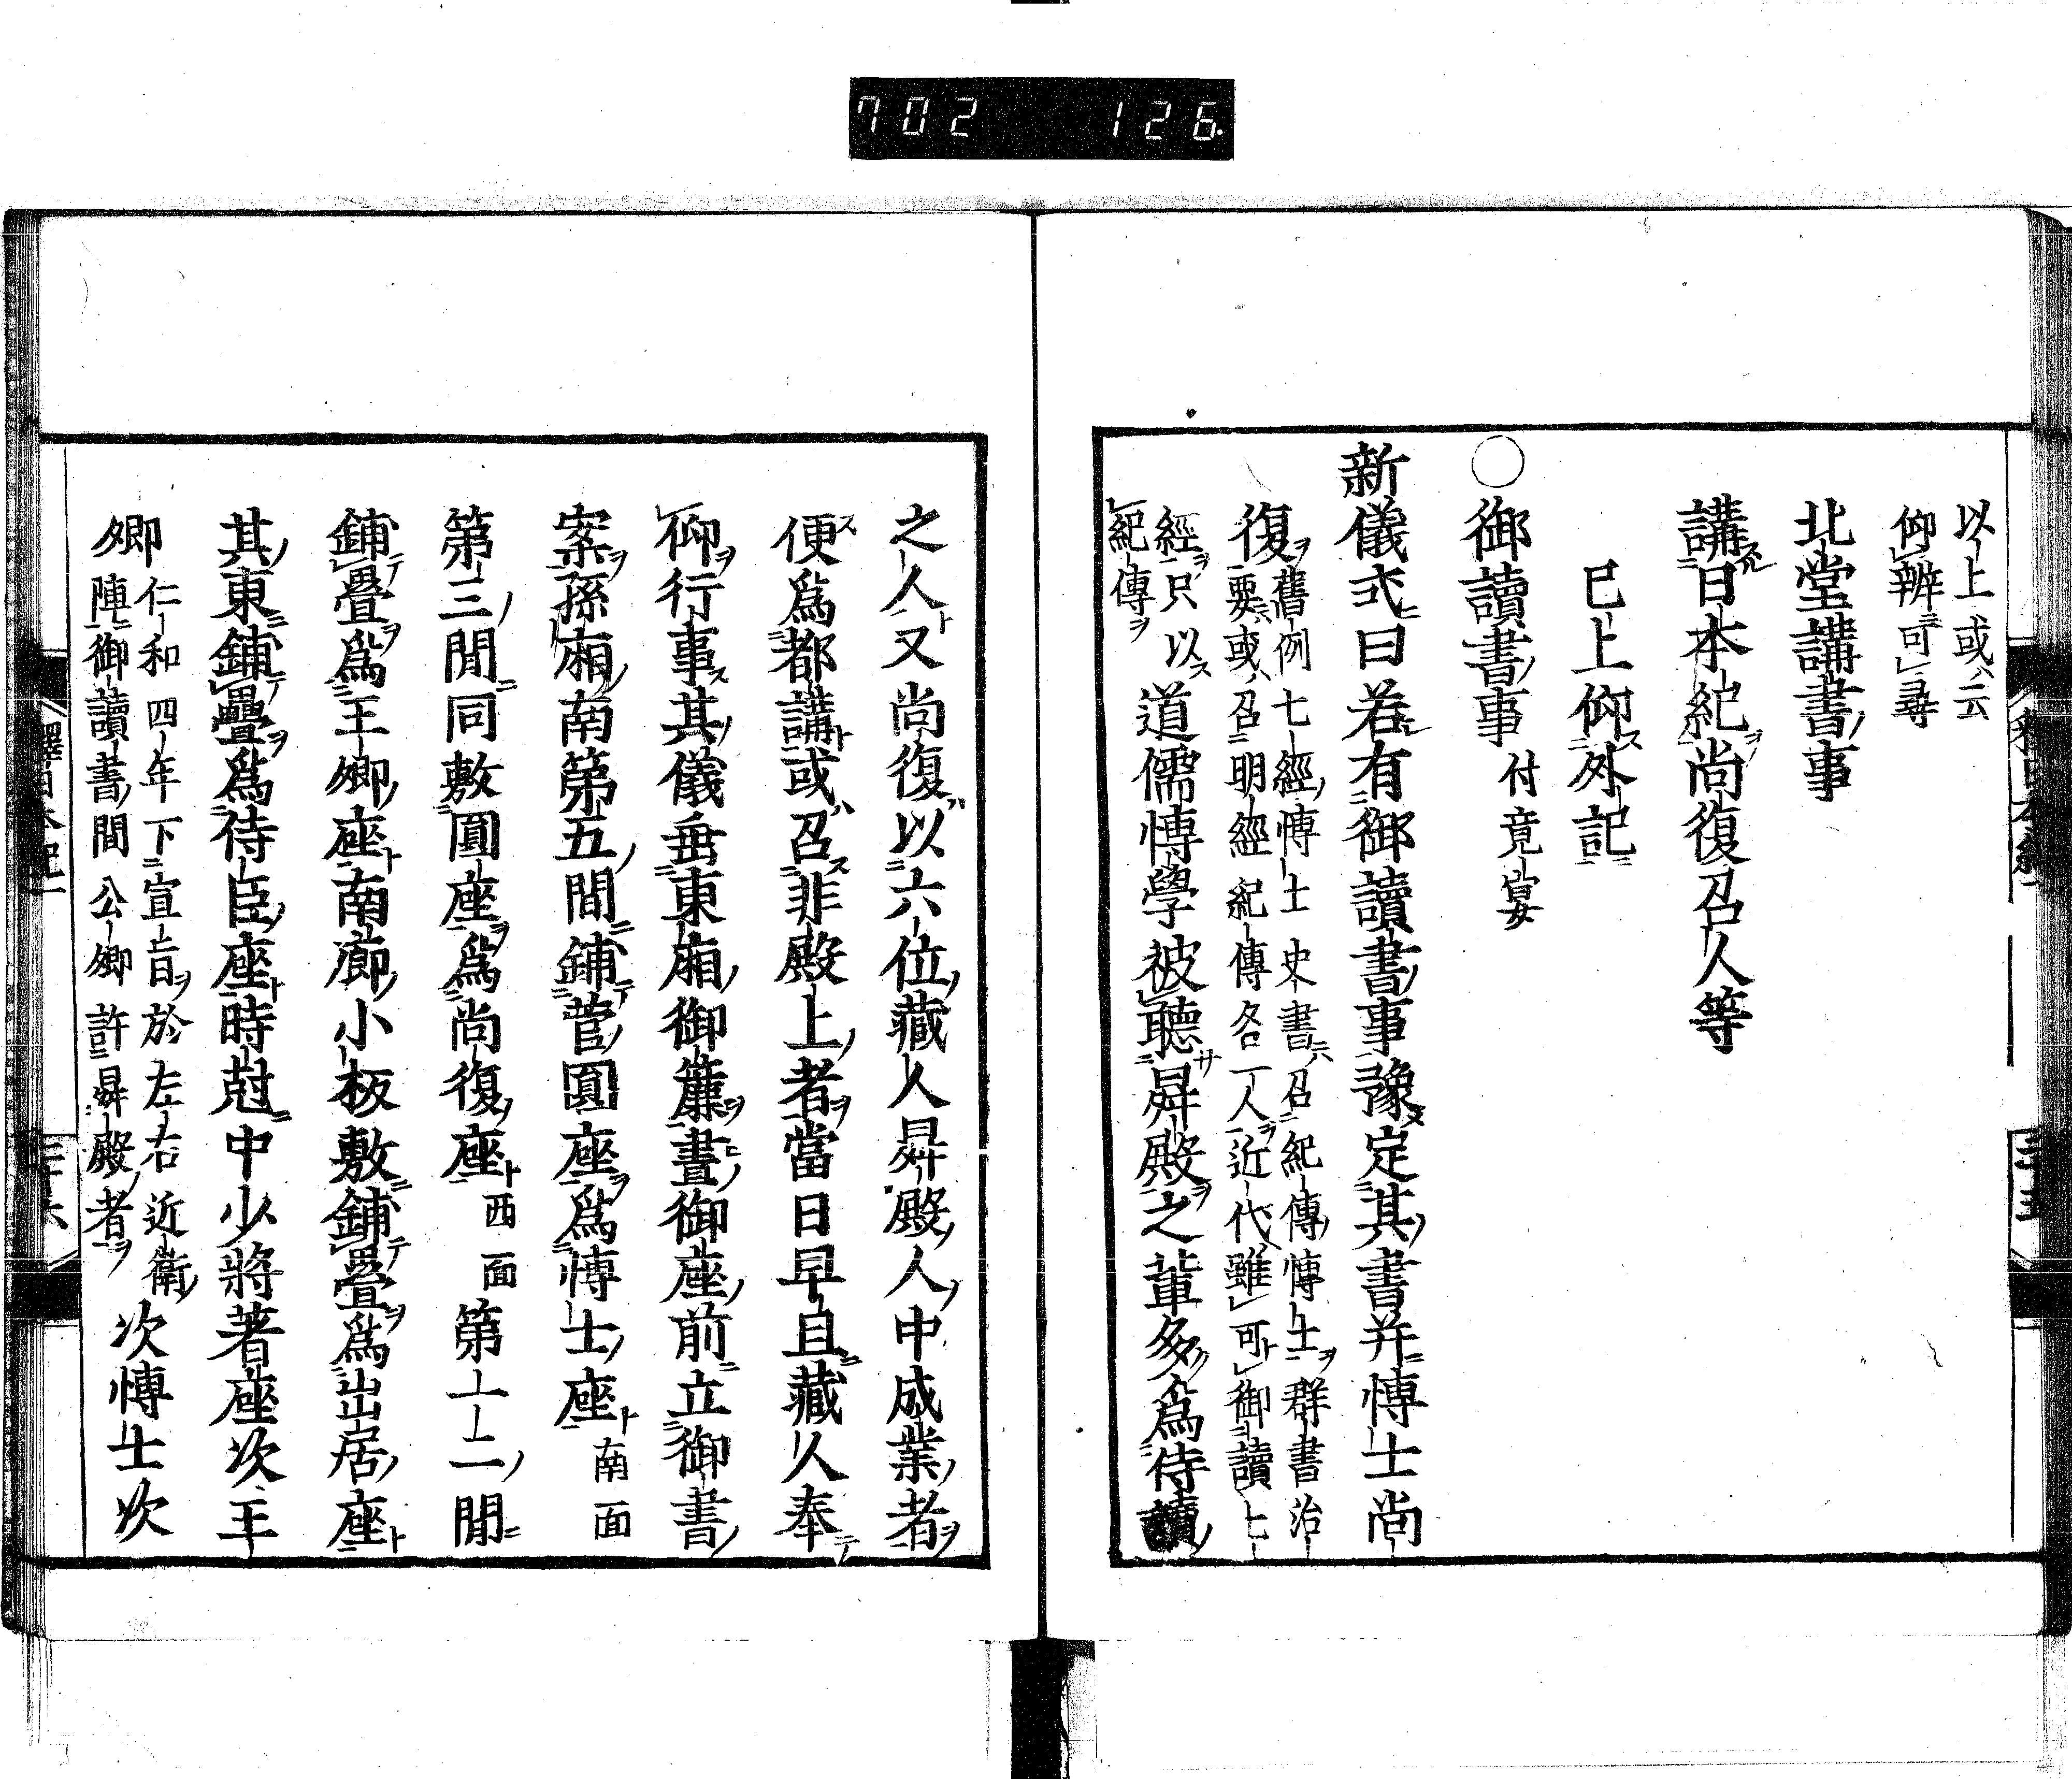 702 126
以上或云
仰辨可尋
北堂講書事
講日本紀尚復召人等
已上仰外記
○御讀書事付竟宴
新儀式曰若有御讀書事豫定其書并博士尚
復舊例七經博士史書召紀傳博士群書治
要或召明經紀傳各一人近代雖可御讀七
經只以道儒博學被聽昇殿之輩多爲侍讀
紀傳
之人又尚復以六位藏人昇殿人中成業者
便爲都講或召非殿上者當日早且藏人奉
仰行事其儀垂東廂御簾晝御座前立御書
案孫廂南第五間鋪菅圓座爲博士座南面
第三間同敷圓座爲尚復座西面第十二間
鋪疊爲王卿座南廊小板敷鋪疊爲出居座
其東鋪疊爲侍臣座時尅中少將著座次王
卿仁和四年下宣旨於左右近衛
陣御讀書間公卿許昇殿者次博士次
釋日本紀一